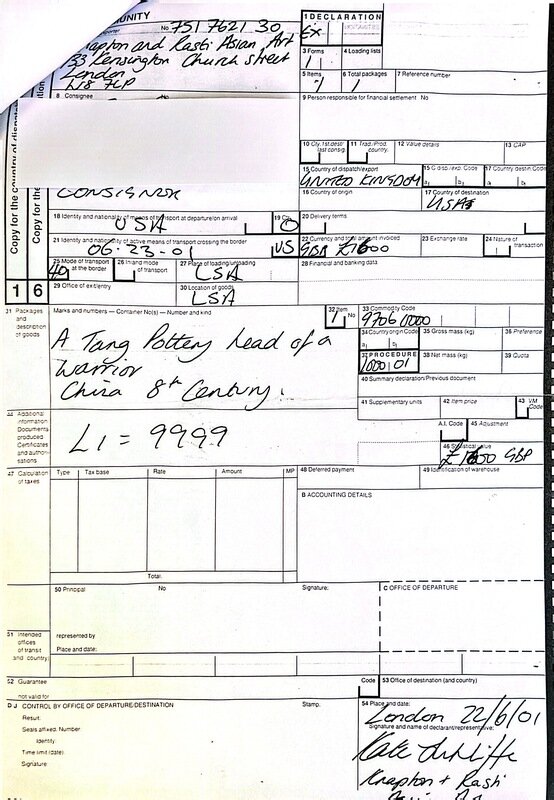 MUNITY
No. 751 7621 30
1 DECLARATION
Ex
Knapton and Rasti Asian Art
3 Forms
4 Loading lists
1
Kensington Church street
London
W8 7LP
5 Items
6 Total packages
7 Reference number
1
1
8 Consignee
9 Person responsible for financial settlement No
10 Cty.1st.dest/ last consig.
11 Trad./Prod. country.
12 Value details
13 CAP
15 Country of dispatch/export
UNITED KINGDOM
15 C.disp./exp. Code
17 Country destin.Code
a
b
a
b
16 Country of origin
17 Country of destination
USA
18 Identity and nationality of means of transport at departure/on arrival
19 Ctr
20 Delivery terms
USA
0
21 Identity and nationality of active means of transport crossing the border
22 Currency and total amount invoiced
23 Exchange rate
24 Nature of transaction
06-23-01
US
GBP
25 Mode of transport at the border
26 Inland mode of transport
27 Place of loading/unloading
28 Financial and banking data
40
LSA
1 6
29 Office of exit/entry
30 Location of goods
LSA
Copy for the country of dispatch
Copy for the
31 Packages and description of goods
Marks and numbers — Container No(s) — Number and kind
32 Item No
33 Commodity Code
1
9706 0000
A Tang Pottery head of a
warrior
China 8th Century.
34 Country origin Code
35 Gross mass (kg)
36 Preference
a
b
37 PROCEDURE
38 Net mass (kg)
39 Quota
1000 01
40 Summary declaration/Previous document
41 Supplementary units
42 Item price
43 VM Code
44 Additional information Documents produced Certificates and authorisations
L1 = 9999
A.I. Code
45 Adjustment
46 Statistical value
GBP
47 Calculation of taxes
Type
Tax base
Rate
Amount
MP
48 Deferred payment
49 Identification of warehouse
B ACCOUNTING DETAILS
Total:
50 Principal
No
Signature:
C OFFICE OF DEPARTURE
51 Intended offices of transit and country)
represented by
Place and date:
52 Guarantee
not valid for
Code
53 Office of destination (and country)
D J CONTROL BY OFFICE OF DEPARTURE/DESTINATION
Stamp.
54 Place and date:
Result.
London 22/6/01
Seals affixed. Number
Signature and name of declarant/representative:
Identity
Time limit (date).
Signature
Knapton + Rasti